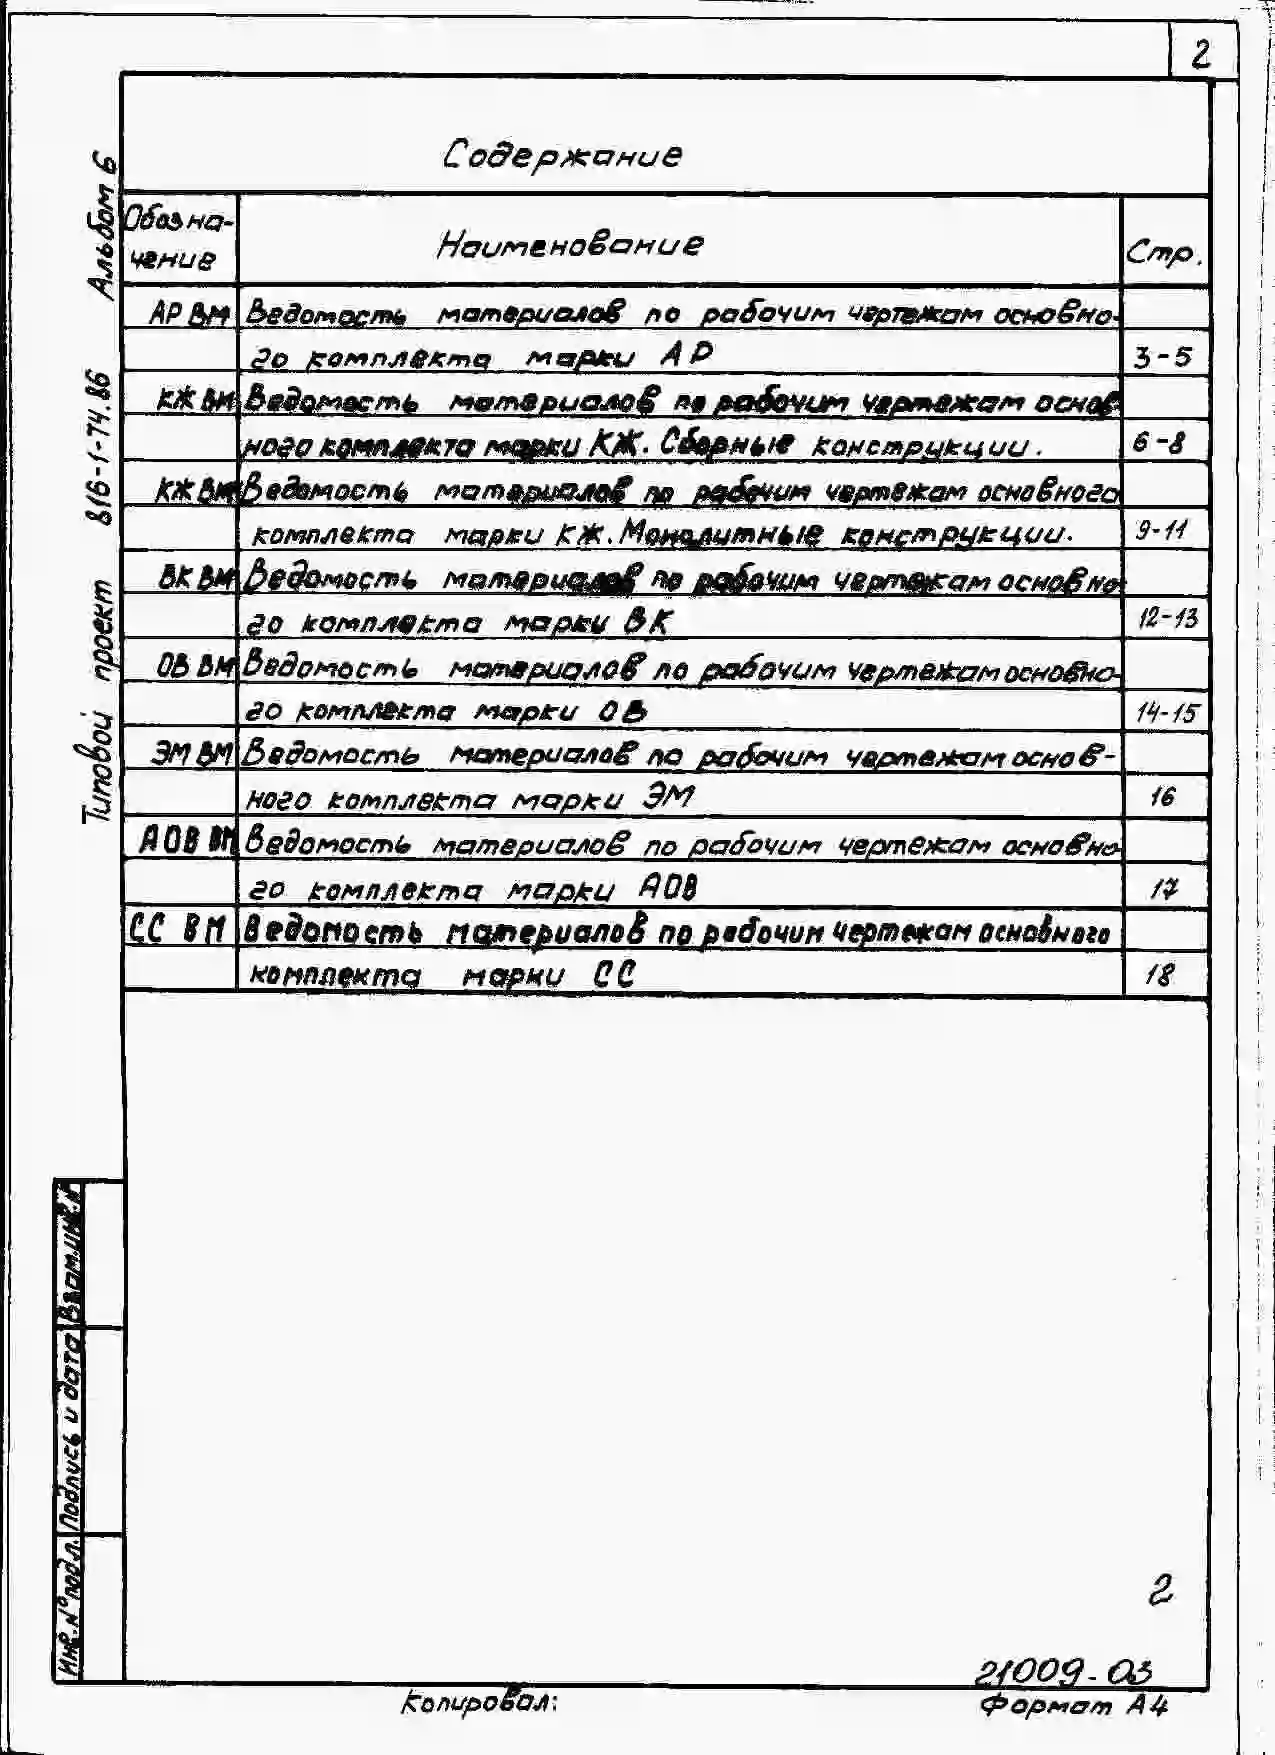 2
Содержание
Обозна-
чение
Наименование
Стр.
АР ВМ Ведомость материалов по рабочим чертежам основно-
го комплекта марки АР 3-5
КЖ ВМ Ведомость материалов по рабочим чертежам основ-
ного комплекта марки КЖ. Сборные конструкции. 6-8
КЖ ВМ Ведомость материалов по рабочим чертежам основного
комплекта марки КЖ. Монолитные конструкции. 9-11
ВК ВМ Ведомость материалов по рабочим чертежам основно-
го комплекта марки ВК 12-13
ОВ ВМ Ведомость материалов по рабочим чертежам основно-
го комплекта марки ОВ 14-15
ЭМ ВМ Ведомость материалов по рабочим чертежам основ-
ного комплекта марки ЭМ 16
АОВ ВМ Ведомость материалов по рабочим чертежам основно-
го комплекта марки АОВ 17
СС ВМ Ведомость материалов по рабочим чертежам основного
комплекта марки СС 18
Типовой проект 816-1-74.86 Альбом 6
Взам.инв.№
Подпись и дата
Инв.№ подл.
2
21009-03
Копировал:
Формат А4